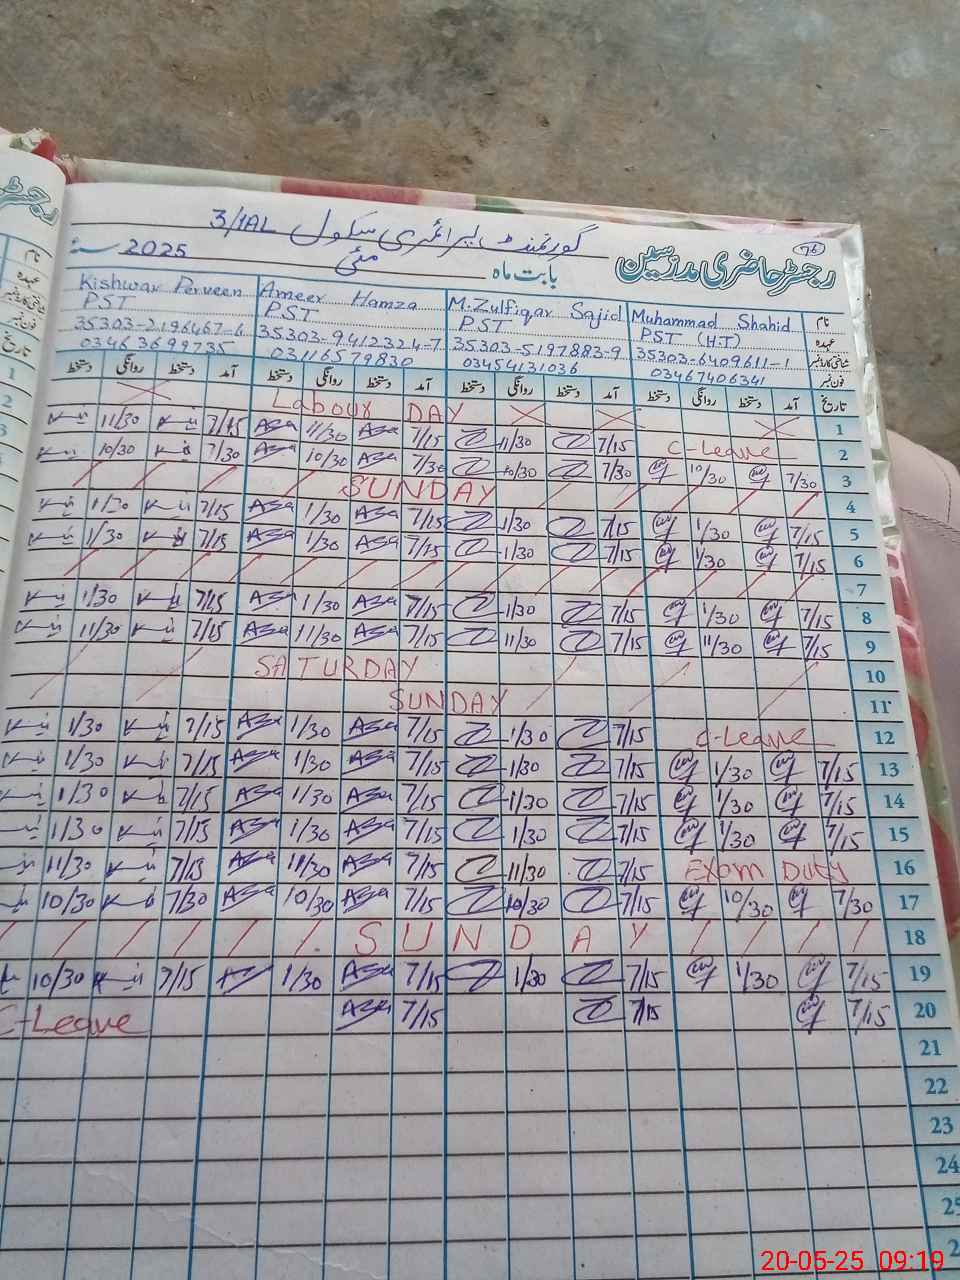 76
گورنمنٹ پرائمری سکول 3/1AL
رجسٹر حاضری مدرسین
بابت ماہ مئی 2025 سنہ
نام Muhammad Shahid M.Zulfiqar Sajid Ameer Hamza Kishwar Perveen
عہدہ PST (H.T) PST PST PST
شناختی کارڈ نمبر 35303-6409611-1 35303-5197883-9 35303-9412324-7 35303-2196467-6
فون نمبر 03467406341 03454131036 03116579830 03463699735
تاریخ آمد دستخط روانگی دستخط آمد دستخط روانگی دستخط آمد دستخط روانگی دستخط آمد دستخط روانگی دستخط
1 Labour DAY
2 C-Leave 7/15 11/30 7/15 11/30 7/15 11/30
3 7/30 10/30 7/30 10/30 7/30 10/30 7/30 10/30
4 SUNDAY
5 7/15 1/30 7/15 1/30 7/15 1/30 7/15 1/30
6 7/15 1/30 7/15 1/30 7/15 1/30 7/15 1/30
7
8 7/15 1/30 7/15 1/30 7/15 1/30 7/15 1/30
9 7/15 11/30 7/15 11/30 7/15 11/30 7/15 11/30
10 SATURDAY
11 SUNDAY
12 C-Leave 7/15 1/30 7/15 1/30 7/15 1/30
13 7/15 1/30 7/15 1/30 7/15 1/30 7/15 1/30
14 7/15 1/30 7/15 1/30 7/15 1/30 7/15 1/30
15 7/15 1/30 7/15 1/30 7/15 1/30 7/15 1/30
16 Exam Duty 7/15 11/30 7/15 11/30 7/15 11/30
17 7/30 10/30 7/15 10/30 7/15 10/30 7/30 10/30
18 SUNDAY
19 7/15 1/30 7/15 1/30 7/15 1/30 7/15 10/30
20 7/15 7/15 7/15 C-Leave
21
22
23
24
25
20-05-25 09:19